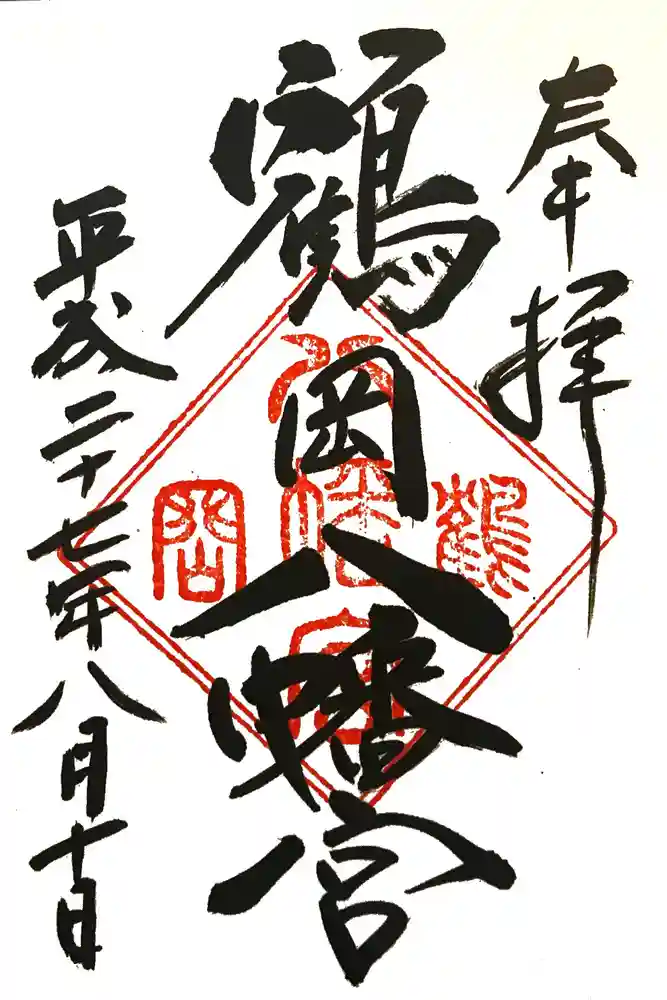 奉拝
鶴岡八幡宮
平成二十七年八月十日
八幡
鶴
岡
宮